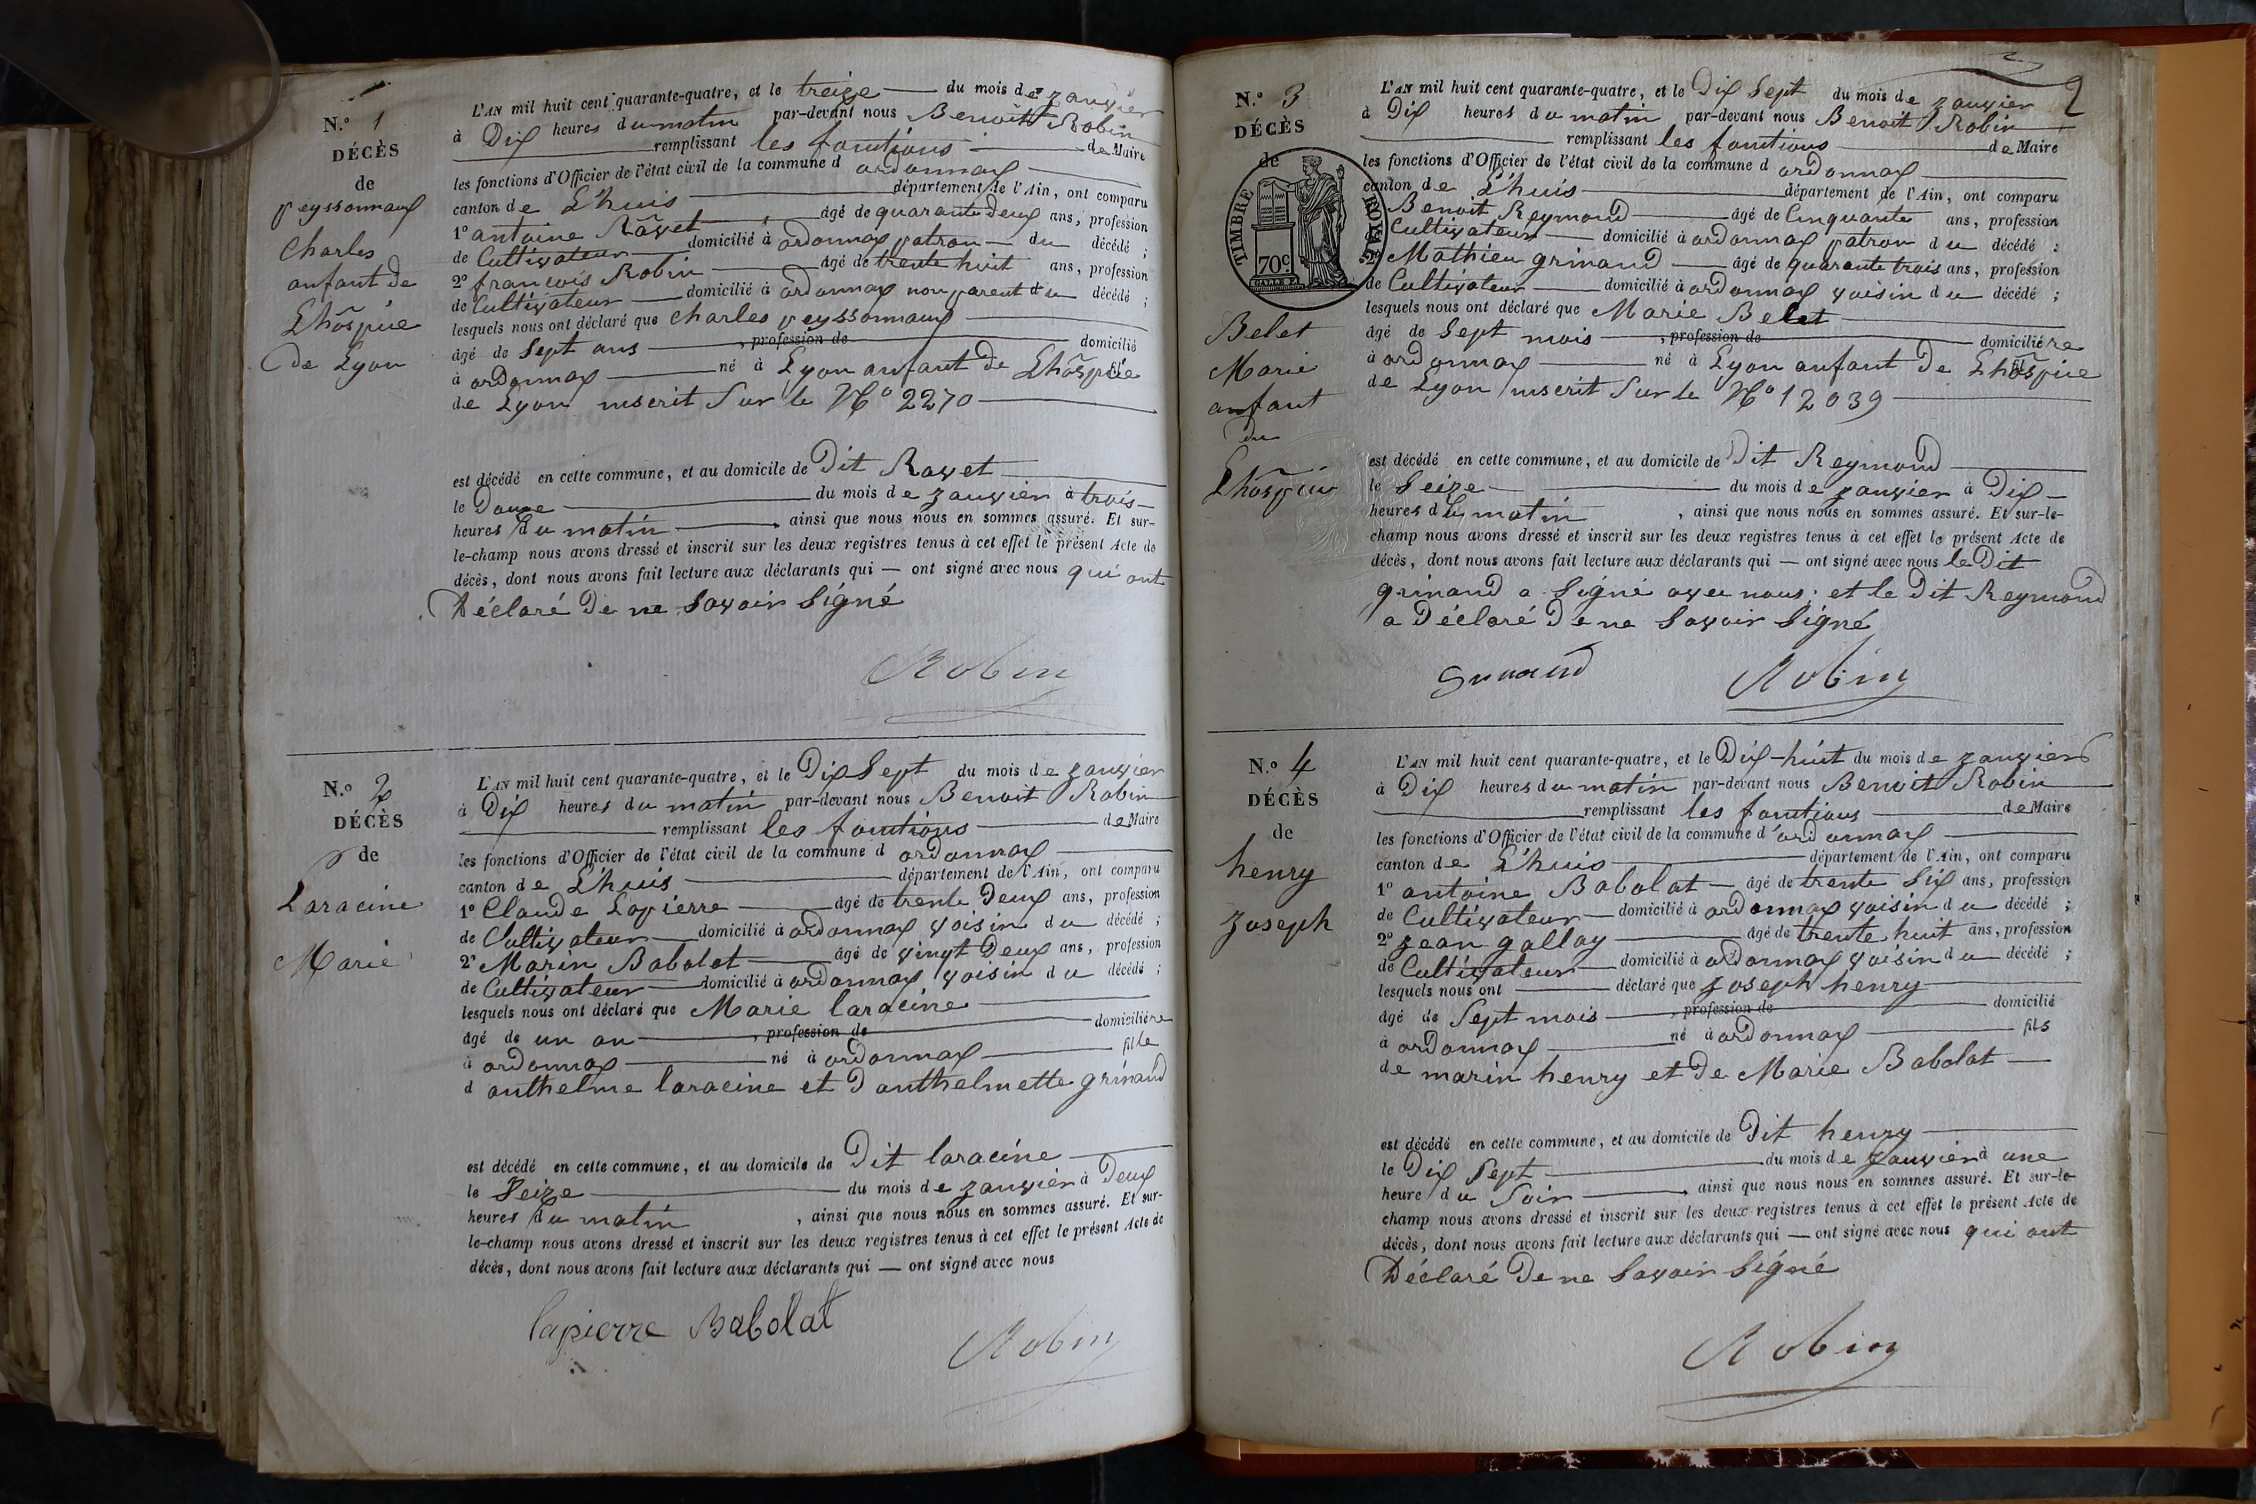 N.º 1
DÉCÈS
de
peyssonnaux
Charles
enfant de
L'hôspice
de Lyon
L'AN mil huit cent quarante-quatre, et le treize du mois de janvier
à Dix heures du matin par-devant nous Benoit Robin
remplissant les fonctions de Maire
les fonctions d'Officier de l'état civil de la commune d ordonnax
canton de L'huis département de l'Ain, ont comparu
1º antoine Ravet âgé de quarante deux ans, profession
de Cultivateur domicilié à ordonnax patron du décédé ;
2º françois Robin âgé de trente huit ans, profession
de Cultivateur domicilié à ordonnax non parent du décédé ;
lesquels nous ont déclaré que Charles peyssonnaux
âgé de Sept ans , profession de domicilié
à ordonnax né à Lyon enfant de L'hôspice
de Lyon inscrit Sur le Nº 2270
est décédé en cette commune, et au domicile de Dit Ravet
le Douze du mois de janvier à trois
heures du matin , ainsi que nous nous en sommes assuré. Et sur-
le-champ nous avons dressé et inscrit sur les deux registres tenus à cet effet le présent Acte de
décès, dont nous avons fait lecture aux déclarants qui — ont signé avec nous qui ont
Déclaré De ne Savoir Signé
Robin
N.º 2
DÉCÈS
de
Laracine
Marie
L'AN mil huit cent quarante-quatre, et le Dix Sept du mois de janvier
à Dix heures du matin par-devant nous Benoit Robin
remplissant les fonctions de Maire
les fonctions d'Officier de l'état civil de la commune d ordonnax
canton de L'huis département de l'Ain, ont comparu
1º Claude Lapierre âgé de trente Deux ans, profession
de Cultivateur domicilié à ordonnax voisin du décédé ;
2º Marin Babolat âgé de vingt Deux ans, profession
de Cultivateur domicilié à ordonnax voisin du décédé ;
lesquels nous ont déclaré que Marie laracine
âgé de un an , profession de domiciliére
à ordonnax né à ordonnax fille
d anthelme laracine et D anthelmette grinand
est décédé en cette commune, et au domicile de Dit laracine
le Seize du mois de janvier à Deux
heures du matin , ainsi que nous nous en sommes assuré. Et sur-
le-champ nous avons dressé et inscrit sur les deux registres tenus à cet effet le présent Acte de
décès, dont nous avons fait lecture aux déclarants qui — ont signé avec nous
lapierre Babolat
Robin
2
N.º 3
DÉCÈS
de
TIMBRE ROYAL
70c.
Belet
Marie
enfant
du
L'hospice
L'AN mil huit cent quarante-quatre, et le Dix Sept du mois de janvier
à Dix heures du matin par-devant nous Benoit Robin
remplissant les fonctions de Maire
les fonctions d'Officier de l'état civil de la commune d ordonnax
canton de L'huis département de l'Ain, ont comparu
Benoit Reymond âgé de Cinquante ans, profession
Cultivateur domicilié à ordonnax patron du décédé ;
2º Mathieu grinand âgé de quarante trois ans, profession
de Cultivateur domicilié à ordonnax voisin du décédé ;
lesquels nous ont déclaré que Marie Belet
âgé de Sept mois , profession de domiciliére
à ordonnax né à Lyon enfant De L'hôspice
de Lyon inscrit Sur le Nº 12039
est décédé en cette commune, et au domicile de Dit Reymond
le Seize du mois de janvier à Dix
heures du matin , ainsi que nous nous en sommes assuré. Et sur-le-
champ nous avons dressé et inscrit sur les deux registres tenus à cet effet le présent Acte de
décès, dont nous avons fait lecture aux déclarants qui — ont signé avec nous le Dit
grinand a Signé avec nous ; et le Dit Reymond
a Déclaré De ne Savoir Signé
Grinand Robin
N.º 4
DÉCÈS
de
henry
joseph
L'AN mil huit cent quarante-quatre, et le Dix-huit du mois de janvier
à Dix heures du matin par-devant nous Benoit Robin
remplissant les fonctions de Maire
les fonctions d'Officier de l'état civil de la commune d'ordonnax
canton de L'huis département de l'Ain, ont comparu
1º antoine Babolat âgé de trente Six ans, profession
de Cultivateur domicilié à ordonnax voisin du décédé ;
2º jean gallay âgé de trente huit ans, profession
de Cultivateur domicilié à ordonnax voisin du décédé ;
lesquels nous ont déclaré que joseph henry
âgé de Sept mois , profession de domicilié
à ordonnax né à ordonnax fils
de marin henry et De Marie Babolat
est décédé en cette commune, et au domicile de Dit henry
le Dix Sept du mois de janvier à une
heure du Soir , ainsi que nous nous en sommes assuré. Et sur-le-
champ nous avons dressé et inscrit sur les deux registres tenus à cet effet le présent Acte de
décès, dont nous avons fait lecture aux déclarants qui — ont signé avec nous qui ont
Déclaré De ne Savoir Signé
Robin